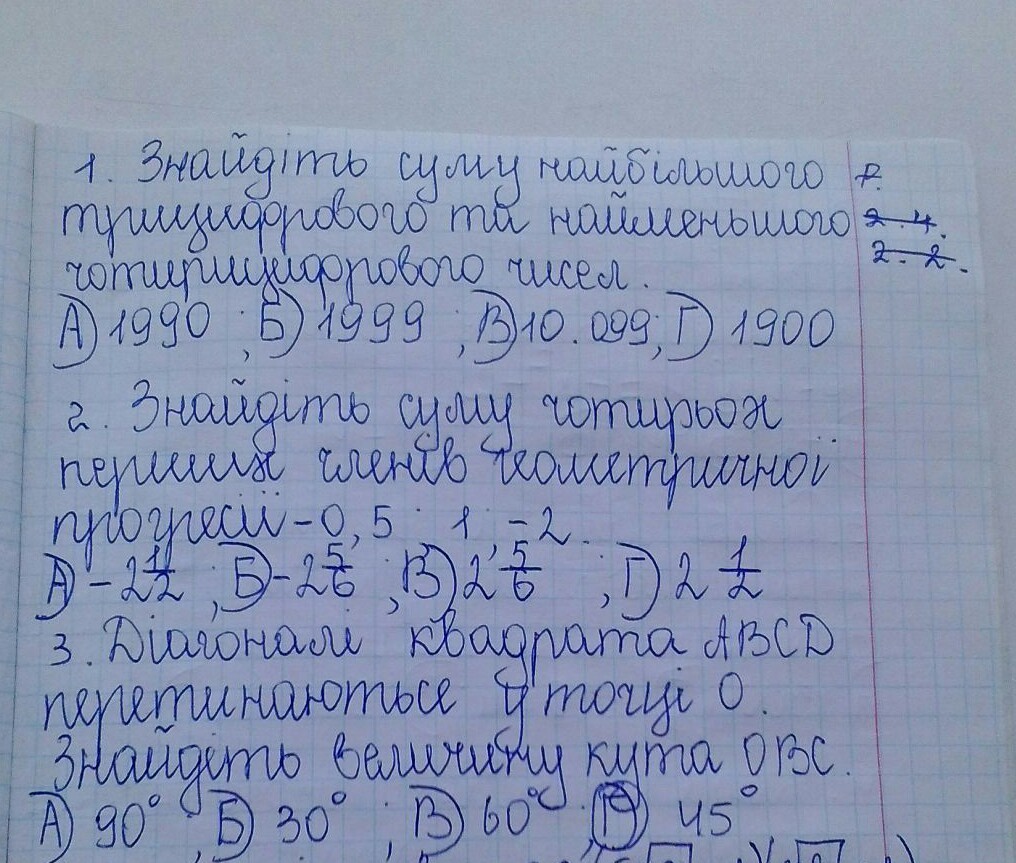 1. Знайдіть суму найбільшого
трицифрового та найменьшого
чотирицифрового чисел.
А) 1990 ; Б) 1999 ; В) 10.099; Г) 1900
2. Знайдіть суму чотирьох
перших членів геометричної
прогресії -0,5 ; 1 ; -2.
А) -2 1/2 ; Б) -2 5/6 ; В) 2 5/6 ; Г) 2 1/2
3. Діагоналі квадрата ABCD
перетинаються у точці О.
Знайдіть величину кута ОВС.
А) 90° ; Б) 30° ; В) 60° ; Г) 45°